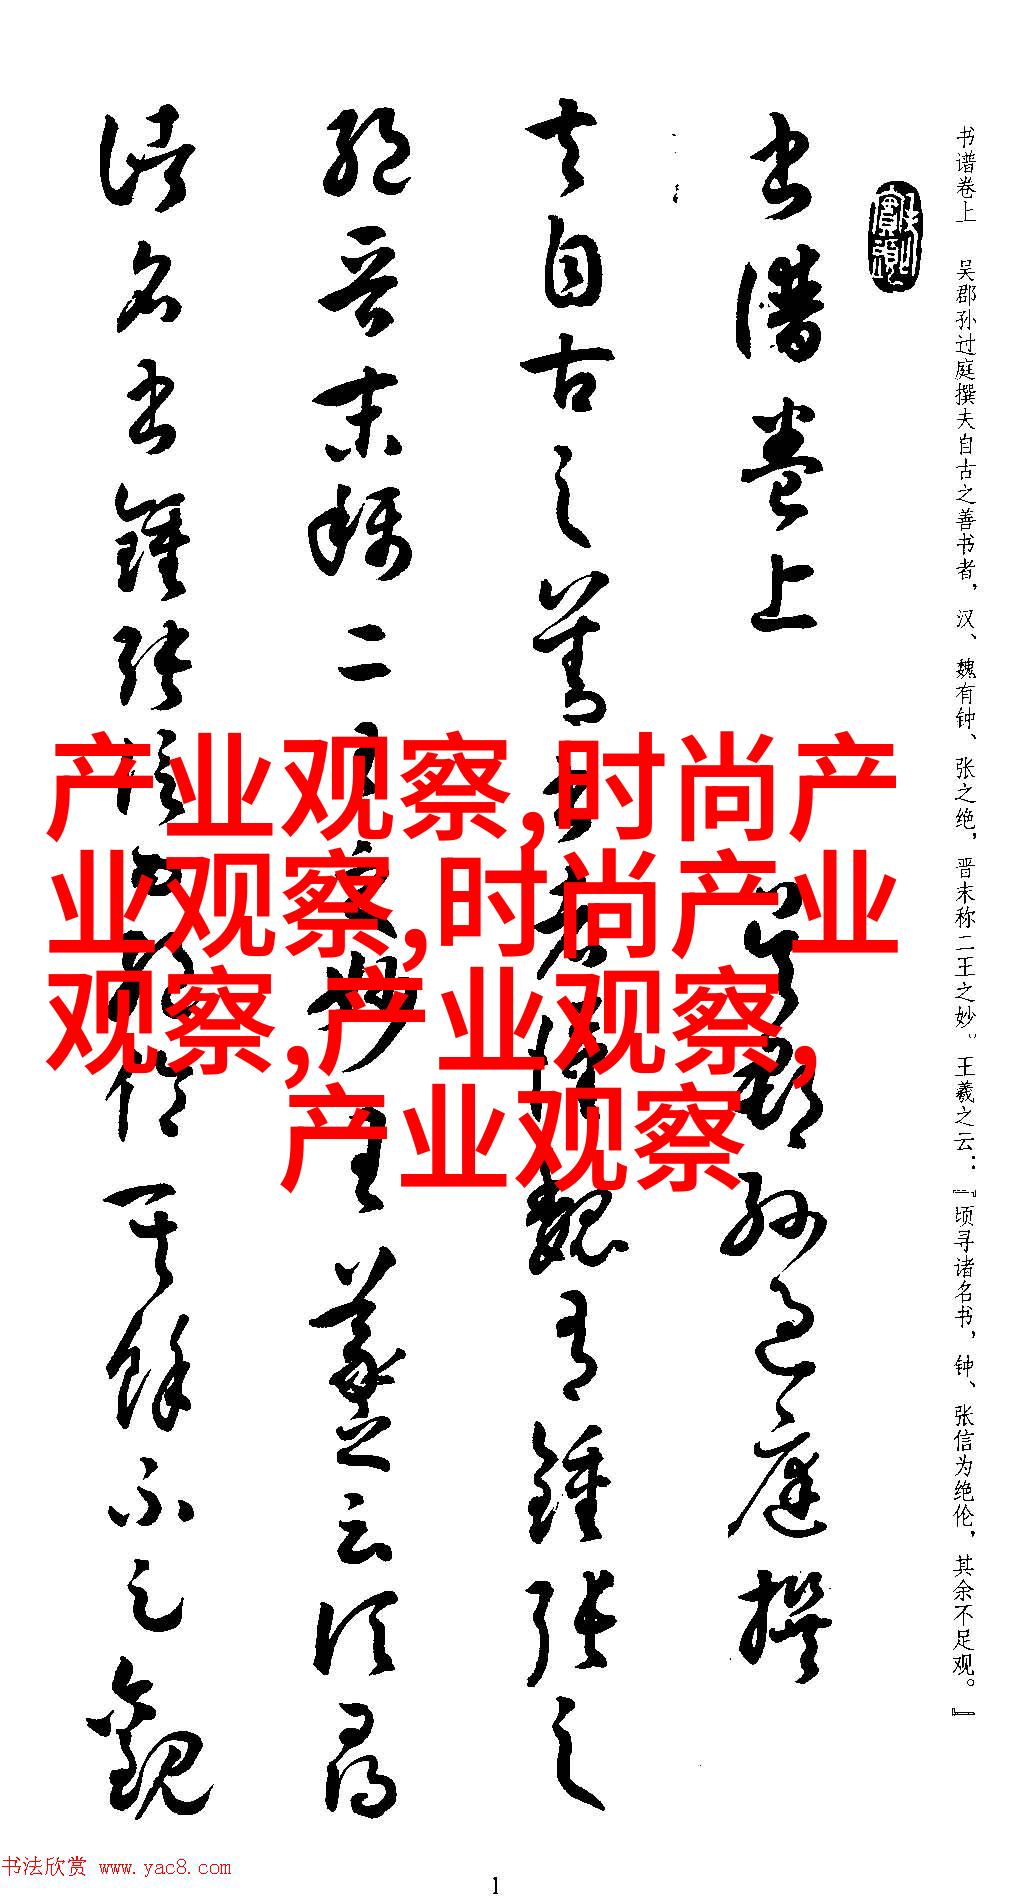 书谱卷上 吴郡孙过庭撰夫自古之善书者，汉、魏有钟、张之绝，晋末称二王之妙。王羲之云：『顷寻诸名书，钟、张信为绝伦，其余不足观。』
書譜卷上 吳郡孫過庭撰
夫自古之善書者漢魏有鍾張之
絕晉末稱二王之妙王羲之云頃尋
諸名書鍾張信為絕倫其餘不足觀
产业观察,时尚产
业观察,时尚产业
观察,产业观察,
产业观察
书法欣赏 www.yac8.com
1